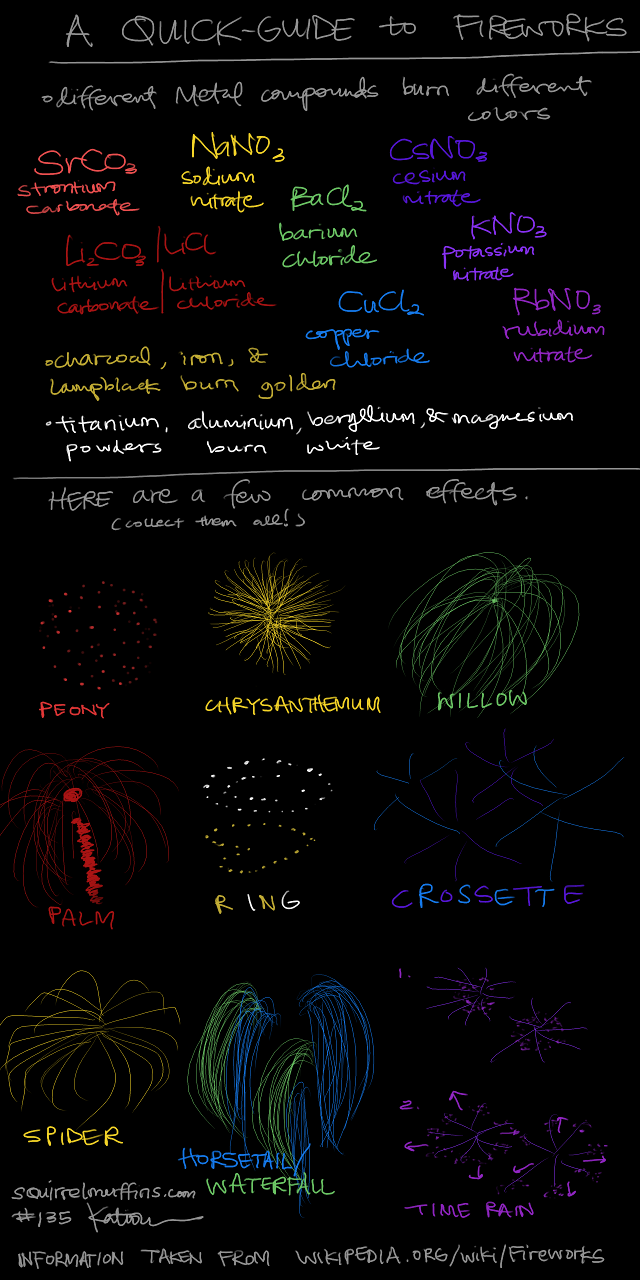 A QUICK-GUIDE to FIREWORKS
•different Metal compounds burn different
colors
SrCO3
strontium
carbonate
NaNO3
sodium
nitrate
CsNO3
cesium
nitrate
BaCl2
barium
chloride
KNO3
potassium
nitrate
Li2CO3 | LiCl
lithium | lithium
carbonate | chloride
CuCl2
copper
chloride
RbNO3
rubidium
nitrate
•charcoal, iron, &
lampblack burn golden
•titanium, aluminium, beryllium, & magnesium
powders burn white
HERE are a few common effects.
(collect them all!)
PEONY
CHRYSANTHEMUM
WILLOW
PALM
RING
CROSSETTE
SPIDER
HORSETAIL/
WATERFALL
1.
2.
TIME RAIN
squirrelmuffins.com
#135
INFORMATION TAKEN FROM WIKIPEDIA.ORG/wiki/Fireworks